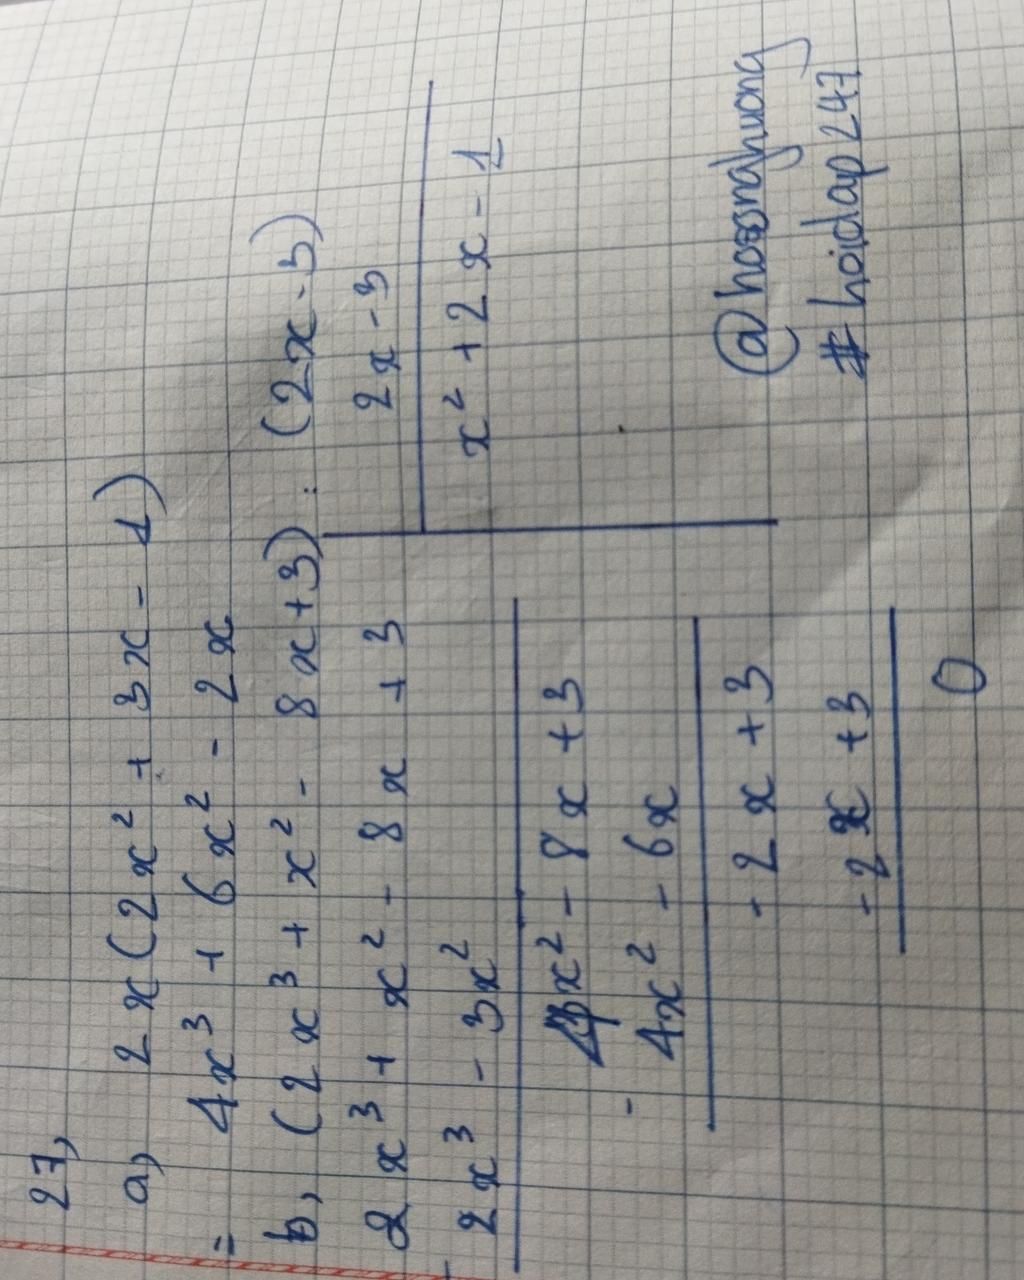 27,
a, 2x(2x² + 3x - 1)
= 4x³ + 6x² - 2x
b, (2x³ + x² - 8x + 3) : (2x - 3)
2x³ + x² - 8x + 3 2x - 3
- 2x³ - 3x² x² + 2x - 1
4x² - 8x + 3
- 4x² - 6x
- 2x + 3
- 2x + 3
0
#hoidap247